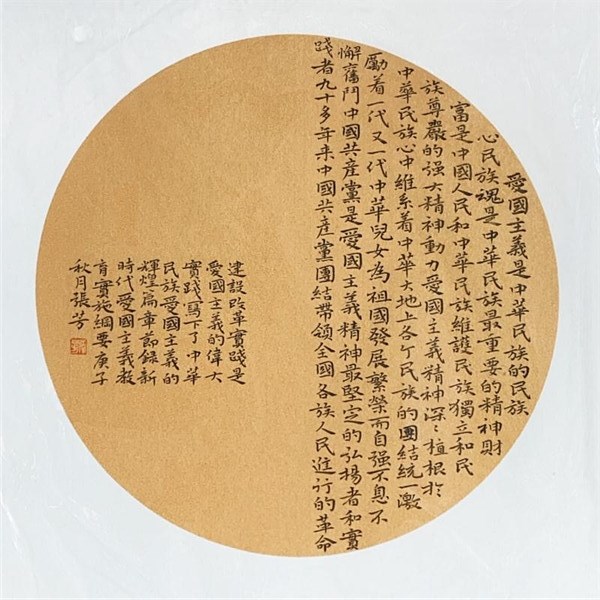 愛國主義是中華民族的民族
心民族魂是中華民族最重要的精神財
富是中國人民和中華民族維護民族獨立和民
族尊嚴的强大精神動力愛國主義精神深〻植根於
中華民族心中維系着中華大地上各个民族的團結統一激
勵着一代又一代中華兒女為祖國發展繁榮而自强不息不
懈奮鬥中國共産黨是愛國主義精神最堅定的弘揚者和實
踐者九十多年来中國共産黨團结带领全國各族人民進行的革命
建設改革實踐是
愛國主義的偉大
實踐寫下了中華
民族愛國主義的
輝煌篇章節録新
時代愛國主義教
育實施綱要庚子
秋月張芳